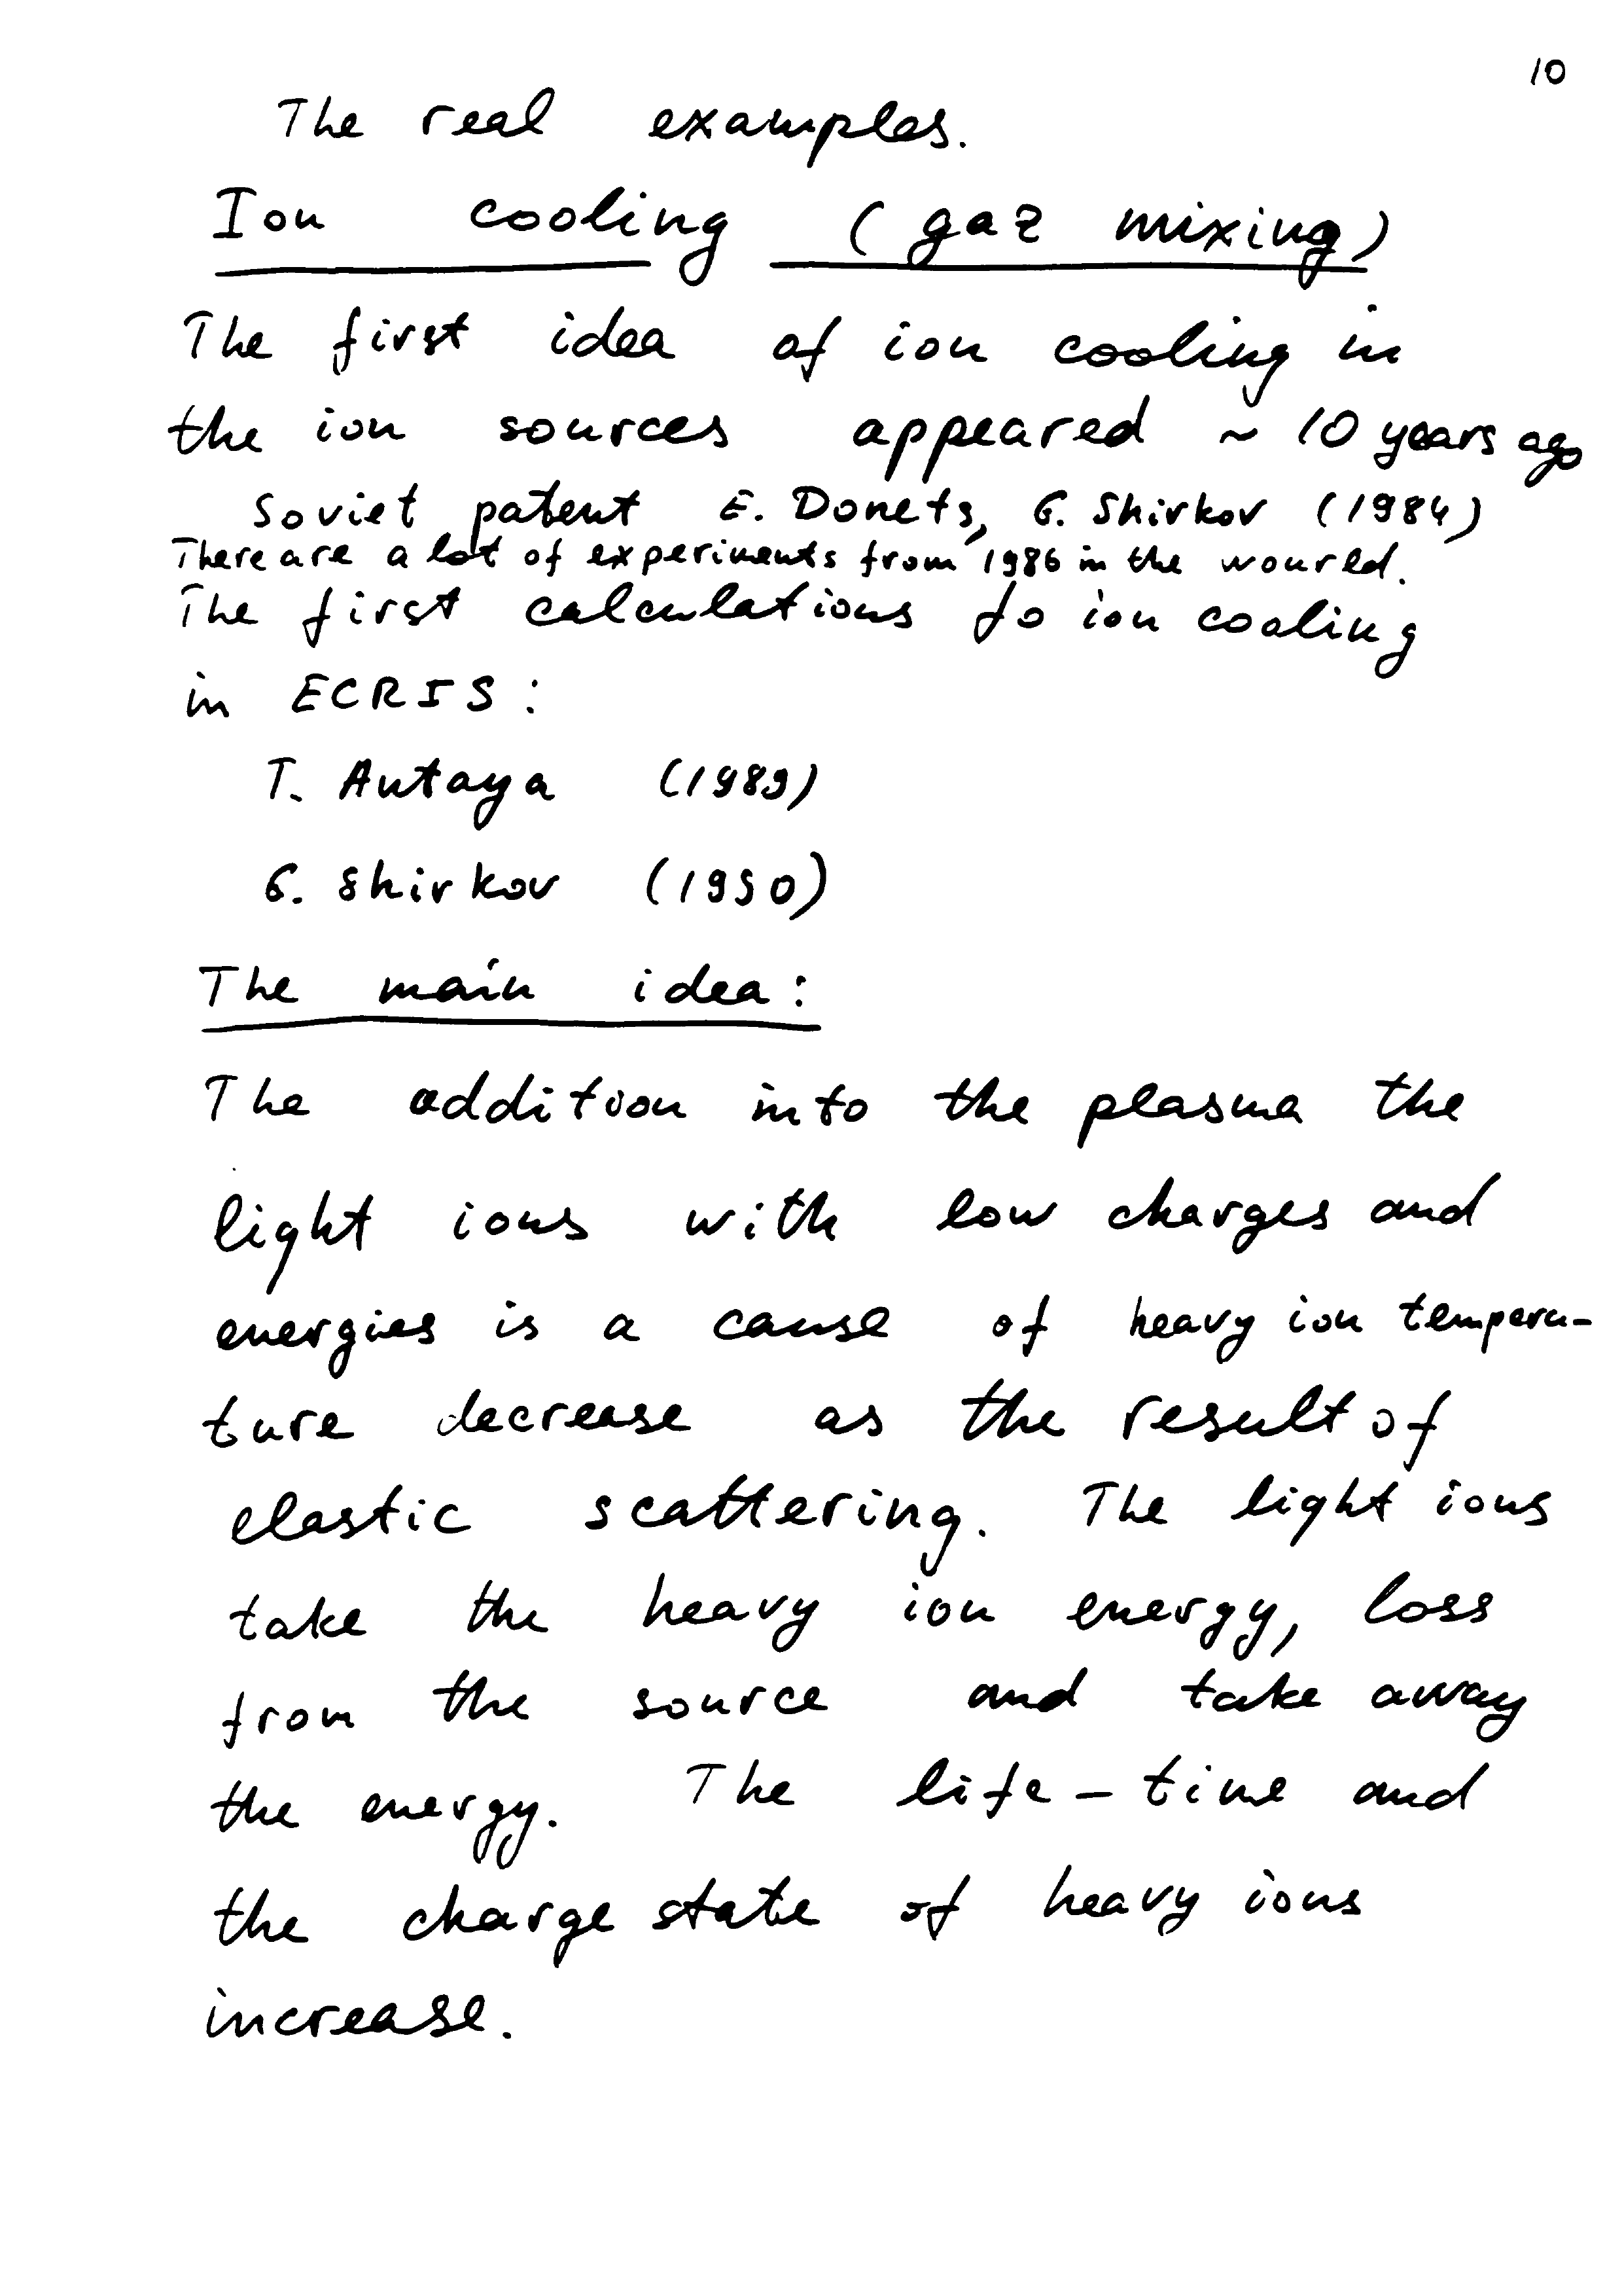 10
The real examples.
Ion cooling (gaz mixing)
The first idea of ion cooling in
the ion sources appeared ~ 10 years ago
Soviet patent E. Donets, G. Shirkov (1984)
There are a lot of experiments from 1986 in the wourld.
The first calculations fo ion cooling
in ECRIS:
T. Antaya (1989)
G. Shirkov (1990)
The main idea:
The addition into the plasma the
light ions with low charges and
energies is a cause of heavy ion tempera-
ture decrease as the result of
elastic scattering. The light ions
take the heavy ion energy, loss
from the source and take away
the energy. The life-time and
the charge state of heavy ions
increase.